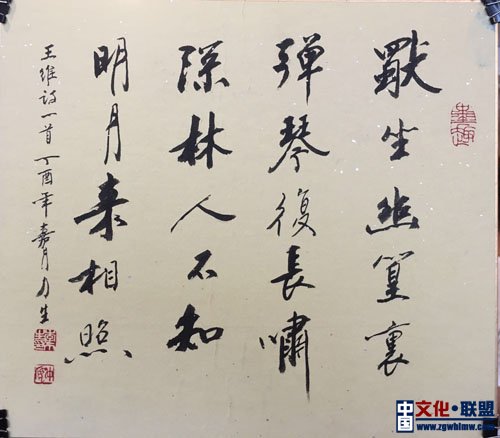 獨坐幽篁裏
彈琴復長嘯
深林人不知
明月来相照
王维诗一首 丁酉年嘉月力生
中国文化·联盟
www.zgwhlmw.com